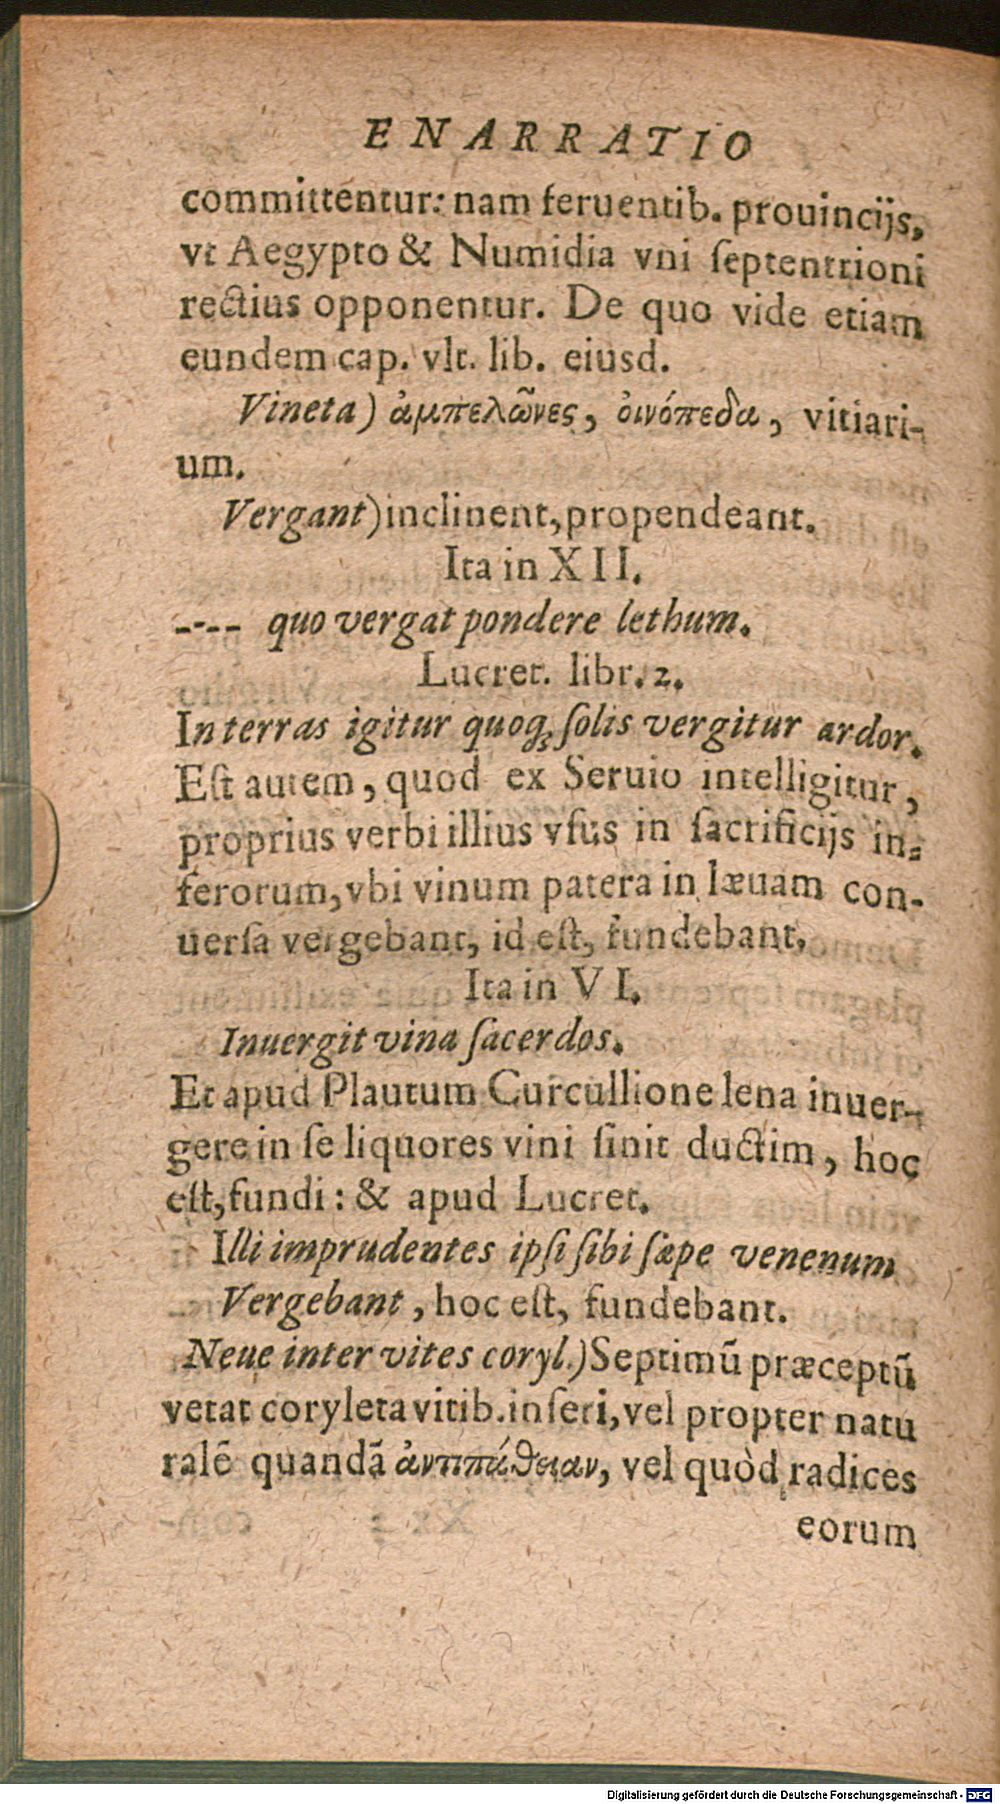 ENARRATIO
committentur: nam feruentib. prouincijs,
vt Aegypto & Numidia vni ſeptentrioni
rectius opponentur. De quo vide etiam
eundem cap. vlt. lib. eiusd.
Vineta) ἀμπελῶνες, ὀινόπεδα, vitiari-
um.
Vergant) inclinent, propendeant.
Ita in XII.
---- quo vergat pondere lethum.
Lucret. libr. 2.
In terras igitur quoq; ſolis vergitur ardor.
Eſt autem, quod ex Seruio intelligitur,
proprius verbi illius vſus in ſacrificijs in-
ferorum, vbi vinum patera in læuam con-
uerſa vergebant, id eſt, fundebant.
Ita in VI.
Inuergit vina ſacerdos.
Et apud Plautum Curcullione lena inuer-
gere in ſe liquores vini ſinit ductim, hoc
eſt, fundi: & apud Lucret.
Illi imprudentes ipſi ſibi ſæpe venenum
Vergebant, hoc eſt, fundebant.
Neue inter vites coryl.) Septimũ præceptũ
vetat coryleta vitib. inſeri, vel propter natu
ralẽ quandã ἀντιπάθειαν, vel quòd radices
eorum
Digitalisierung gefördert durch die Deutsche Forschungsgemeinschaft - DFG